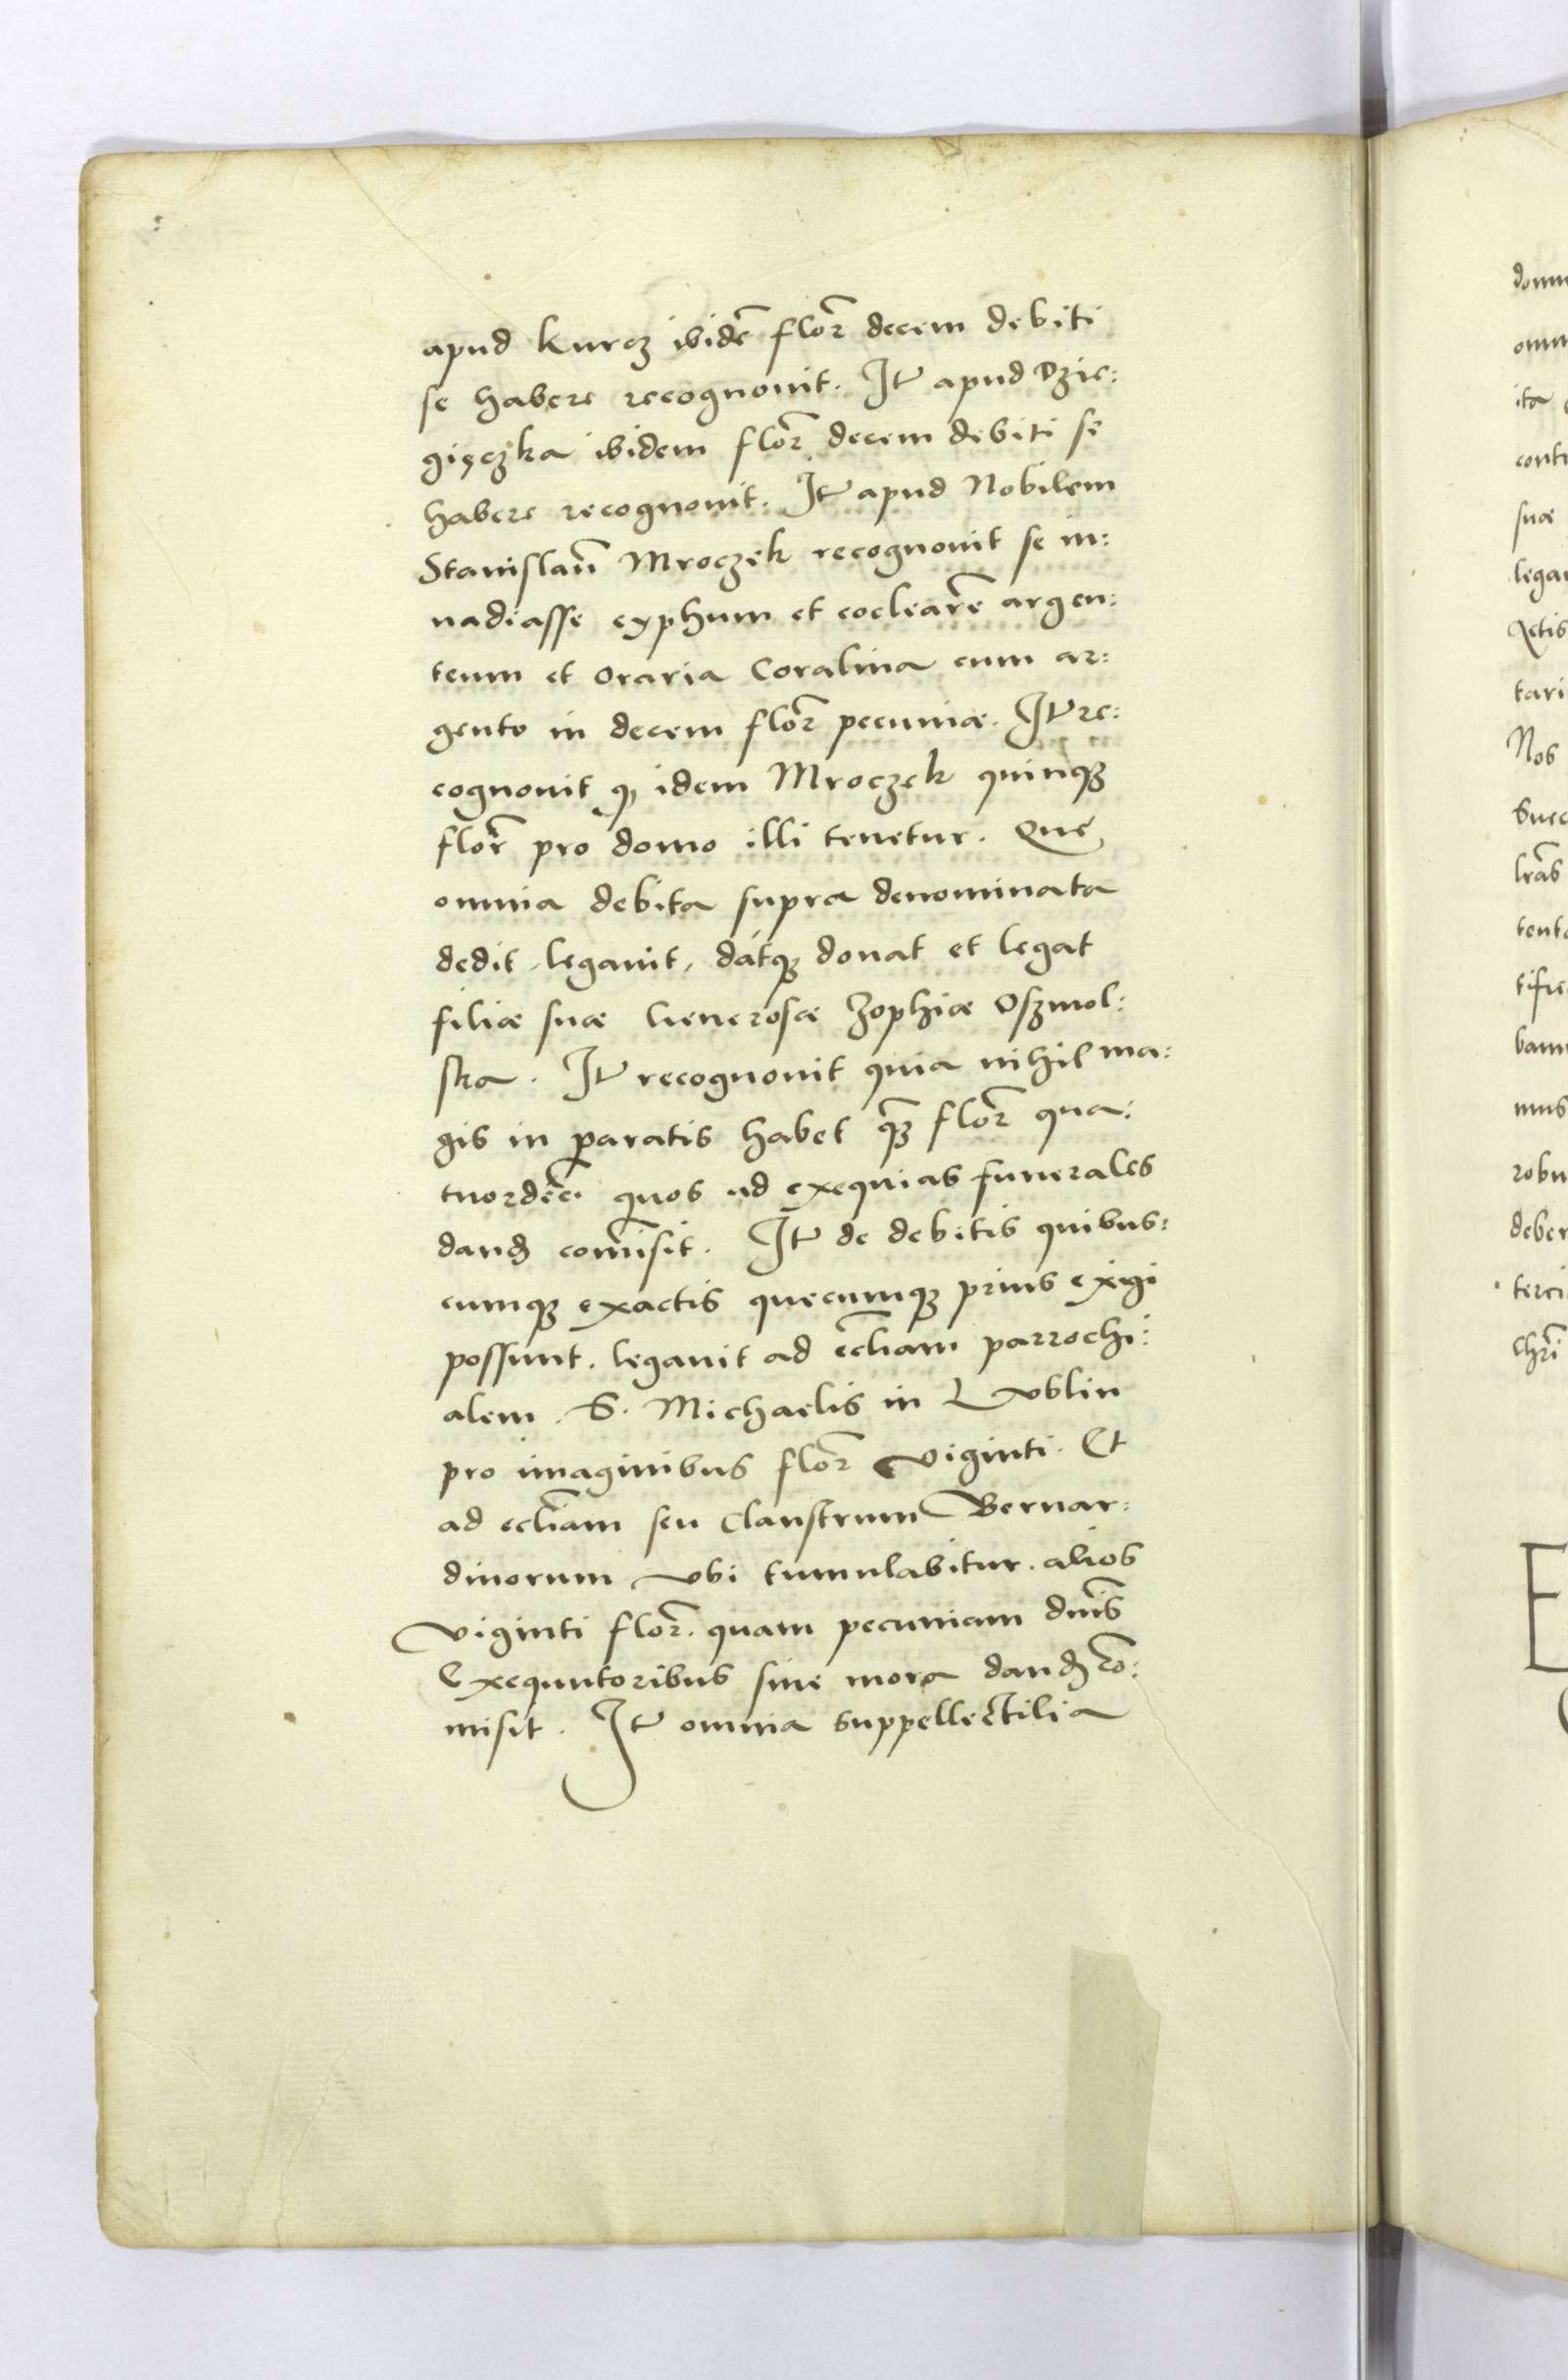 apud Kurcz ibidē flor̄ decem debiti
se habere recognouit. Itē apud Dzie:
gięczka ibidem flor̄ decem debiti se
habere recognouit. Itē apud Nobilem
Stanislaū Mroczek recognouit se in:
uadiasse cyphum et cocleare argen:
teum et oraria Coralina cum ar:
gento in decem flor̄ pecuniæ. Itē re:
cognouit ꝙ idem Mroczek quinqꝫ
flor̄ pro domo illi tenetur. Quę
omnia debita supra denominata
dedit, legauit, dátqꝫ donat et legat
filiæ suæ Generosæ Zophiæ Oszmol:
ska. Itē recognouit quia nihil ma:
gis in paratis habet qꝫ̄ flor̄ qua:
tuordēc̄. quos ad exequias funerales
danđ com̄isit. Itē de debitis quibus:
cumqꝫ exactis quecumqꝫ prius exigi
possunt. legauit ad ecc̄liam parrochi:
alem. S. Michaelis in Lublin
pro imaginibus flor̄ viginti. Et
ad eccl̄iam seu Claustrum Bernar:
dinorum vbi tumulabitur. alios
viginti flor̄. quam pecuniam dnīs
Exequutoribus sine mora danđ cō:
misit. Itē omnia suppellectilia
domu
omn
ita
contr
suæ
lega
Actis
tari
Nos
Succ
lrās
tent
tifi
bam
mus
robu
deber
terci
Chrī
E